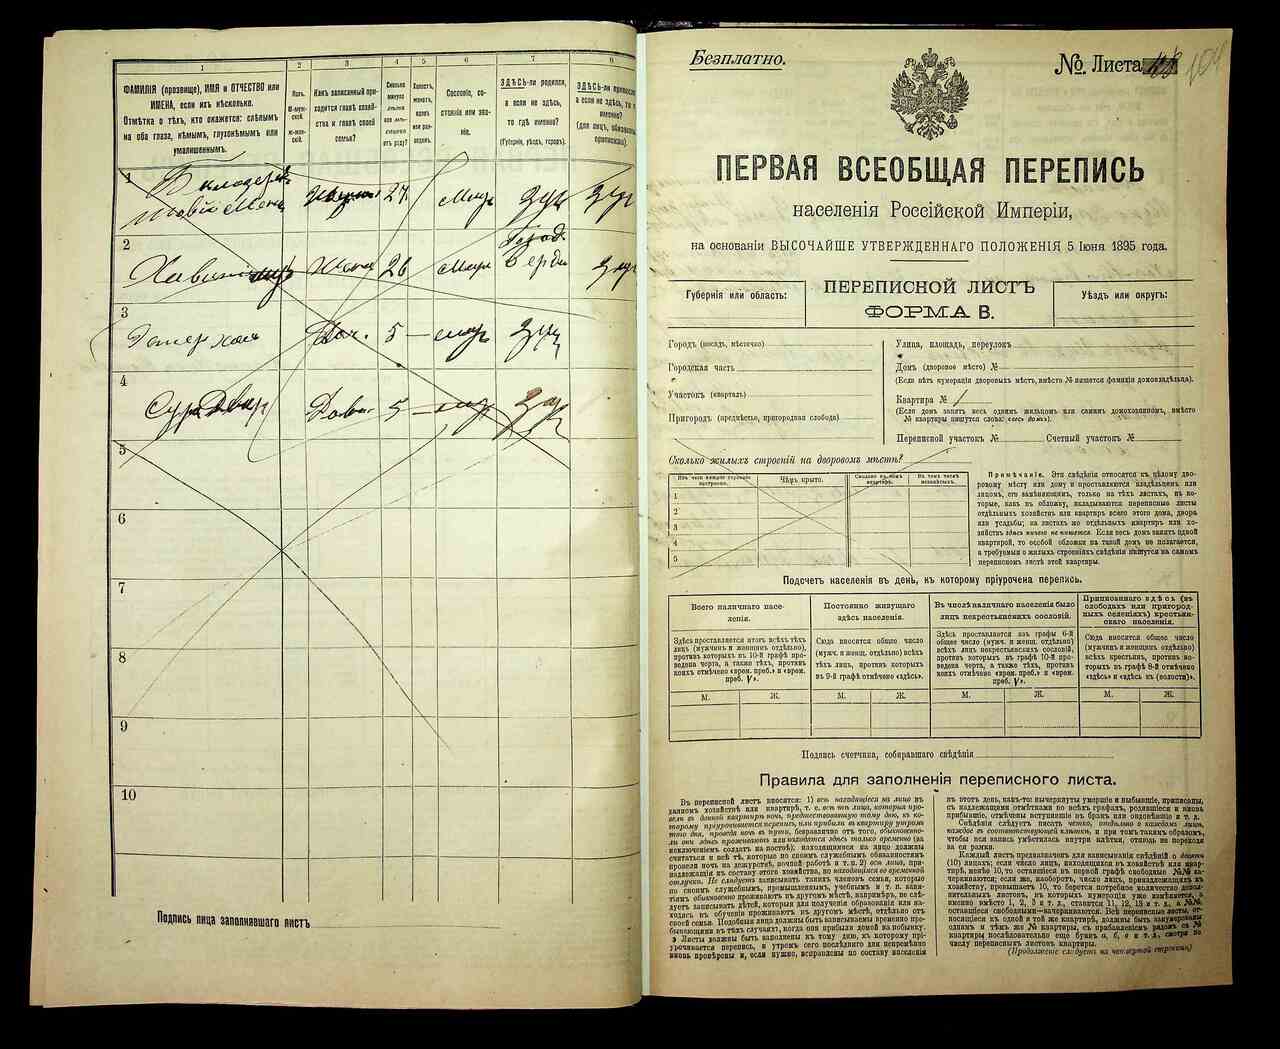 1
2
3
4
5
6
7
ФАМИЛІЯ (прозвище), ИМЯ и ОТЧЕСТВО или
ИМЕНА, если ихъ нѣсколько.
Отмѣтка о тѣхъ, кто окажется: слѣпымъ
на оба глаза, нѣмымъ, глухонѣмымъ или
умалишеннымъ.
Полъ.
М-муж-
ской.
Ж-жен-
скій.
Какъ записанный при-
ходится главѣ хозяй-
ства и главѣ своей
семьи?
Сколько
минуло
отъ роду?
Сословіе, со-
стояніе или зва-
ніе.
ЗДѢСЬ-ли родился,
а если не здѣсь,
то гдѣ именно?
(Губернія, уѣздъ, городъ).
ЗДѢСЬ-ли
а если не здѣсь, то
именно?
1
27
2
Жена 26
3
Доч. 5
4
5
5
6
7
8
9
10
Подпись лица заполнявшаго листъ
Безплатно.
№ Листа 104
ПЕРВАЯ ВСЕОБЩАЯ ПЕРЕПИСЬ
населенія Россійской Имперіи,
на основаніи ВЫСОЧАЙШЕ УТВЕРЖДЕННАГО ПОЛОЖЕНІЯ 5 Іюня 1895 года.
Губернія или область:
ПЕРЕПИСНОЙ ЛИСТЪ
ФОРМА В.
Уѣздъ или округъ:
Городъ (посадъ, мѣстечко)
Городская часть
Участокъ (кварталъ)
Пригородъ (предмѣстье, пригородная слобода)
Улица, площадь, переулокъ
Домъ (дворовое мѣсто) №
(Если нѣтъ нумераціи дворовыхъ мѣстъ, вмѣсто № пишется фамилія домовладѣльца).
Квартира № 1
(Если домъ занятъ весь однимъ жильцомъ или самимъ домохозяиномъ, вмѣсто
№ квартиры пишутся слова: «весь домъ»).
Переписной участокъ № Счетный участокъ №
Сколько жилыхъ строеній на дворовомъ мѣстѣ?
Чѣмъ крыто.
1
2
3
4
5
Примѣчаніе. Эти свѣдѣнія относятся къ цѣлому дво-
ровому мѣсту или дому и проставляются владѣльцемъ или
лицомъ, его замѣняющимъ, только на тѣхъ листахъ, въ ко-
торые, какъ въ обложку, вкладываются переписные листы
отдѣльныхъ хозяйствъ или квартиръ всего этого дома, двора
или усадьбы; на листахъ же отдѣльныхъ квартиръ или хо-
зяйствъ здѣсь ничего не пишется. Если весь домъ занятъ одной
квартирой, то особой обложки на такой домъ не полагается,
а требуемыя о жилыхъ строеніяхъ свѣдѣнія пишутся на самомъ
переписномъ листѣ этой квартиры.
Подсчетъ населенія въ день, къ которому пріурочена перепись.
Всего наличнаго насе-
ленія.
Постоянно живущаго
здѣсь населенія.
Въ числѣ наличнаго населенія было
лицъ некрестьянскихъ сословій.
Приписаннаго здѣсь (въ
слободахъ или пригород-
ныхъ селеніяхъ) крестьян-
скаго населенія.
Здѣсь проставляется итогъ всѣхъ тѣхъ
лицъ (мужчинъ и женщинъ отдѣльно),
противъ которыхъ въ 10-й графѣ про-
ведена черта, а также тѣхъ, противъ
коихъ отмѣчено «врем. преб.» и «врем.
преб. V».
Сюда вносится общее число
(мужч. и женщ. отдѣльно) всѣхъ
тѣхъ лицъ, противъ которыхъ
въ 9-й графѣ отмѣчено «здѣсь».
Здѣсь проставляется изъ графы 6-й
общее число (мужч. и женщ. отдѣльно)
всѣхъ лицъ некрестьянскихъ сословій,
противъ которыхъ въ графѣ 10-й про-
ведена черта, а также тѣхъ, противъ
коихъ отмѣчено «врем. преб.» и «врем.
преб. V».
Сюда вносится общее число
(мужчинъ и женщинъ отдѣльно)
всѣхъ крестьянъ, противъ ко-
торыхъ въ графѣ 8-й отмѣчено
«здѣсь» и «здѣсь къ (волости)».
М. Ж. М. Ж. М. Ж. М. Ж.
Подпись счетчика, собиравшаго свѣдѣнія
Правила для заполненія переписного листа.
Въ переписной листъ вносятся: 1) всѣ находящіеся на лицо въ
данномъ хозяйствѣ или квартирѣ, т. е. всѣ тѣ лица, которыя про-
вели въ данной квартирѣ ночь, предшествовавшую тому дню, къ ко-
торому пріурочивается перепись, или прибыли въ квартиру утромъ
того дня, проведя ночь въ пути, безразлично отъ того, обыкновен-
но ли они здѣсь проживаютъ или находятся здѣсь только временно (за
исключеніемъ солдатъ на постоѣ); находящимися на лицо должны
считаться и всѣ тѣ, которые по своимъ служебнымъ обязанностямъ
провели ночь на дежурствѣ, ночной работѣ и т. п. 2) всѣ лица, при-
надлежащія къ составу этого хозяйства, но находящіяся во временной
отлучкѣ. Не слѣдуетъ записывать такихъ членовъ семьи, которые
по своимъ служебнымъ, промышленнымъ, учебнымъ и т. п. заня-
тіямъ обыкновенно проживаютъ въ другомъ мѣстѣ, напримѣръ, не слѣ-
дуетъ записывать дѣтей, которыя для полученія образованія или на-
ходясь въ обученіи проживаютъ въ другомъ мѣстѣ, отдѣльно отъ
своей семьи. Подобныя лица должны быть записываемы временно пре-
бывающими въ тѣхъ случаяхъ, когда они прибыли домой на побывку.
Листы должны быть заполнены къ тому дню, къ которому прі-
урочивается перепись, и утромъ сего послѣдняго дня непремѣнно
вновь провѣрены и, если нужно, исправлены по составу населенія
въ этотъ день, какъ-то: вычеркнуты умершіе и выбывшіе, приписаны,
съ надлежащими отмѣтками по всѣмъ графамъ, родившіеся и вновь
прибывшіе, отмѣчены вступившіе въ бракъ или овдовѣвшіе и т. д.
Свѣдѣнія слѣдуетъ писать четко, отдѣльно о каждомъ лицѣ,
каждое въ соотвѣтствующей клѣткѣ, и при томъ такимъ образомъ,
чтобы вся запись умѣстилась внутри клѣтки, отнюдь не переходя
за ея рамки.
Каждый листъ предназначенъ для записыванія свѣдѣній о десяти
(10) лицахъ; если число лицъ, находящихся въ хозяйствѣ или квар-
тирѣ, менѣе 10, то оставшіеся въ первой графѣ свободные №№ за-
черкиваются; если же, наоборотъ, число лицъ, принадлежащихъ къ
хозяйству, превышаетъ 10, то берется потребное количество допол-
нительныхъ листовъ, въ которыхъ нумерація уже измѣняется, а
именно вмѣсто 1, 2, 3 и т. д., ставится 11, 12, 13 и т. д., а №№,
оставшіеся свободными—зачеркиваются. Всѣ переписные листы, от-
носящіеся къ одной и той же квартирѣ, должны быть занумерованы
однимъ и тѣмъ же № квартиры, съ прибавленіемъ рядомъ съ №
квартиры послѣдовательно еще буквъ а, б, в и т. д., смотря по
числу переписныхъ листовъ квартиры.
(Продолженіе слѣдуетъ на четвертой страницѣ)